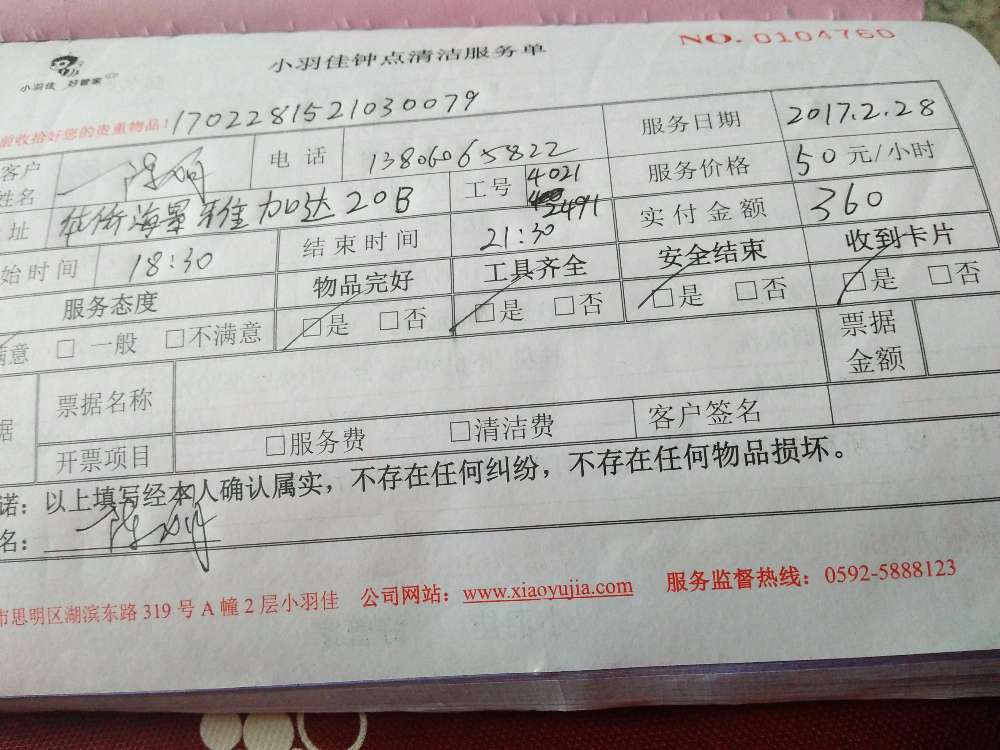 小羽佳 好管家
小羽佳钟点清洁服务单
NO. 0104760
前收拾好您的贵重物品！ 1702281521030079
客户姓名 电话 13806065822 服务日期 2017.2.28
工号 4021 2491 服务价格 50元/小时
址 加达20B 实付金额 360
始时间 18:30 结束时间 21:30
服务态度 物品完好 工具齐全 安全结束 收到卡片
满意 □ 一般 □不满意 □是 □否 □是 □否 □是 □否 □是 □否
据 票据名称 票据金额
开票项目 □服务费 □清洁费 客户签名
诺：以上填写经本人确认属实，不存在任何纠纷，不存在任何物品损坏。
名：
市思明区湖滨东路 319 号 A 幢 2 层小羽佳 公司网站：www.xiaoyujia.com 服务监督热线：0592-5888123